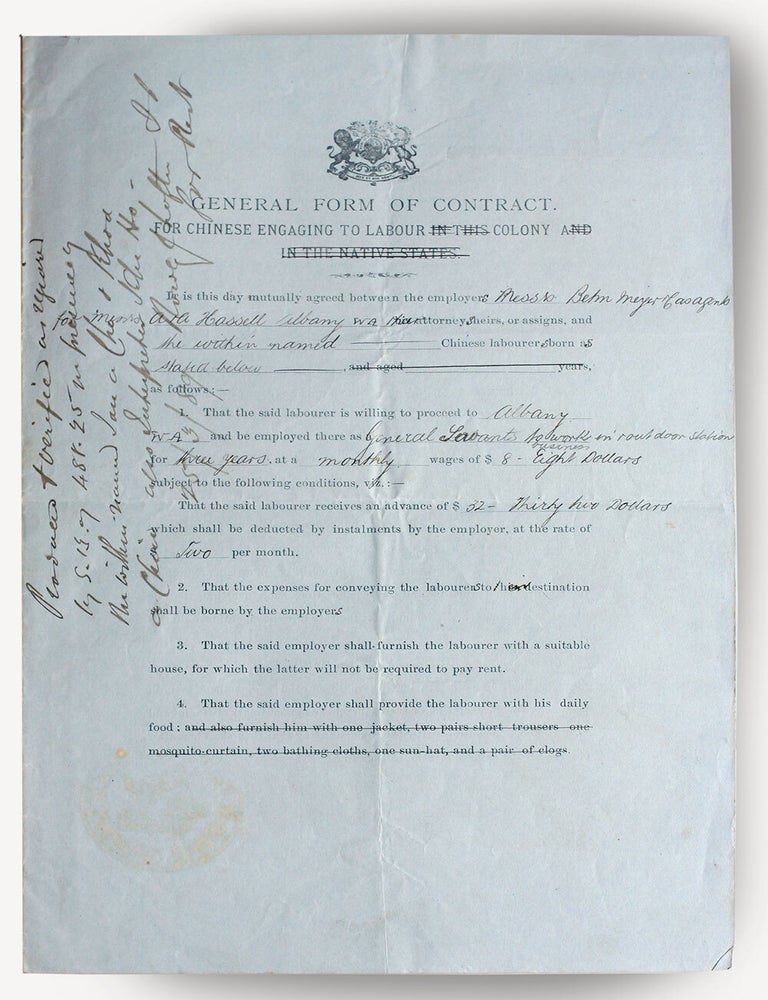 GENERAL FORM OF CONTRACT.
FOR CHINESE ENGAGING TO LABOUR IN THIS COLONY AND
IN THE NATIVE STATES.
It is this day mutually agreed between the employers Messrs Behn Meyer & Co as agents
for Messrs A Y A Hassell Albany W A their attorneys, heirs, or assigns, and
the within named Chinese labourers born as
stated below, and aged years,
as follows:—
1. That the said labourer is willing to proceed to Albany
W A and be employed there as General Servants to work in r outdoor station business
for three years. at a monthly wages of $ 8 - Eight Dollars
subject to the following conditions, viz.:—
That the said labourer receives an advance of $ 32 - Thirty two Dollars
which shall be deducted by instalments by the employer, at the rate of
Two per month.
2. That the expenses for conveying the labourers to their destination
shall be borne by the employers
3. That the said employer shall furnish the labourer with a suitable
house, for which the latter will not be required to pay rent.
4. That the said employer shall provide the labourer with his daily
food; and also furnish him with one jacket, two pairs short trousers one
mosquito-curtain, two bathing cloths, one sun-hat, and a pair of clogs.
Produced & verified as required
by S. 13 of 48 V. 25 in presence of
the within named
a Chinese Interpreter